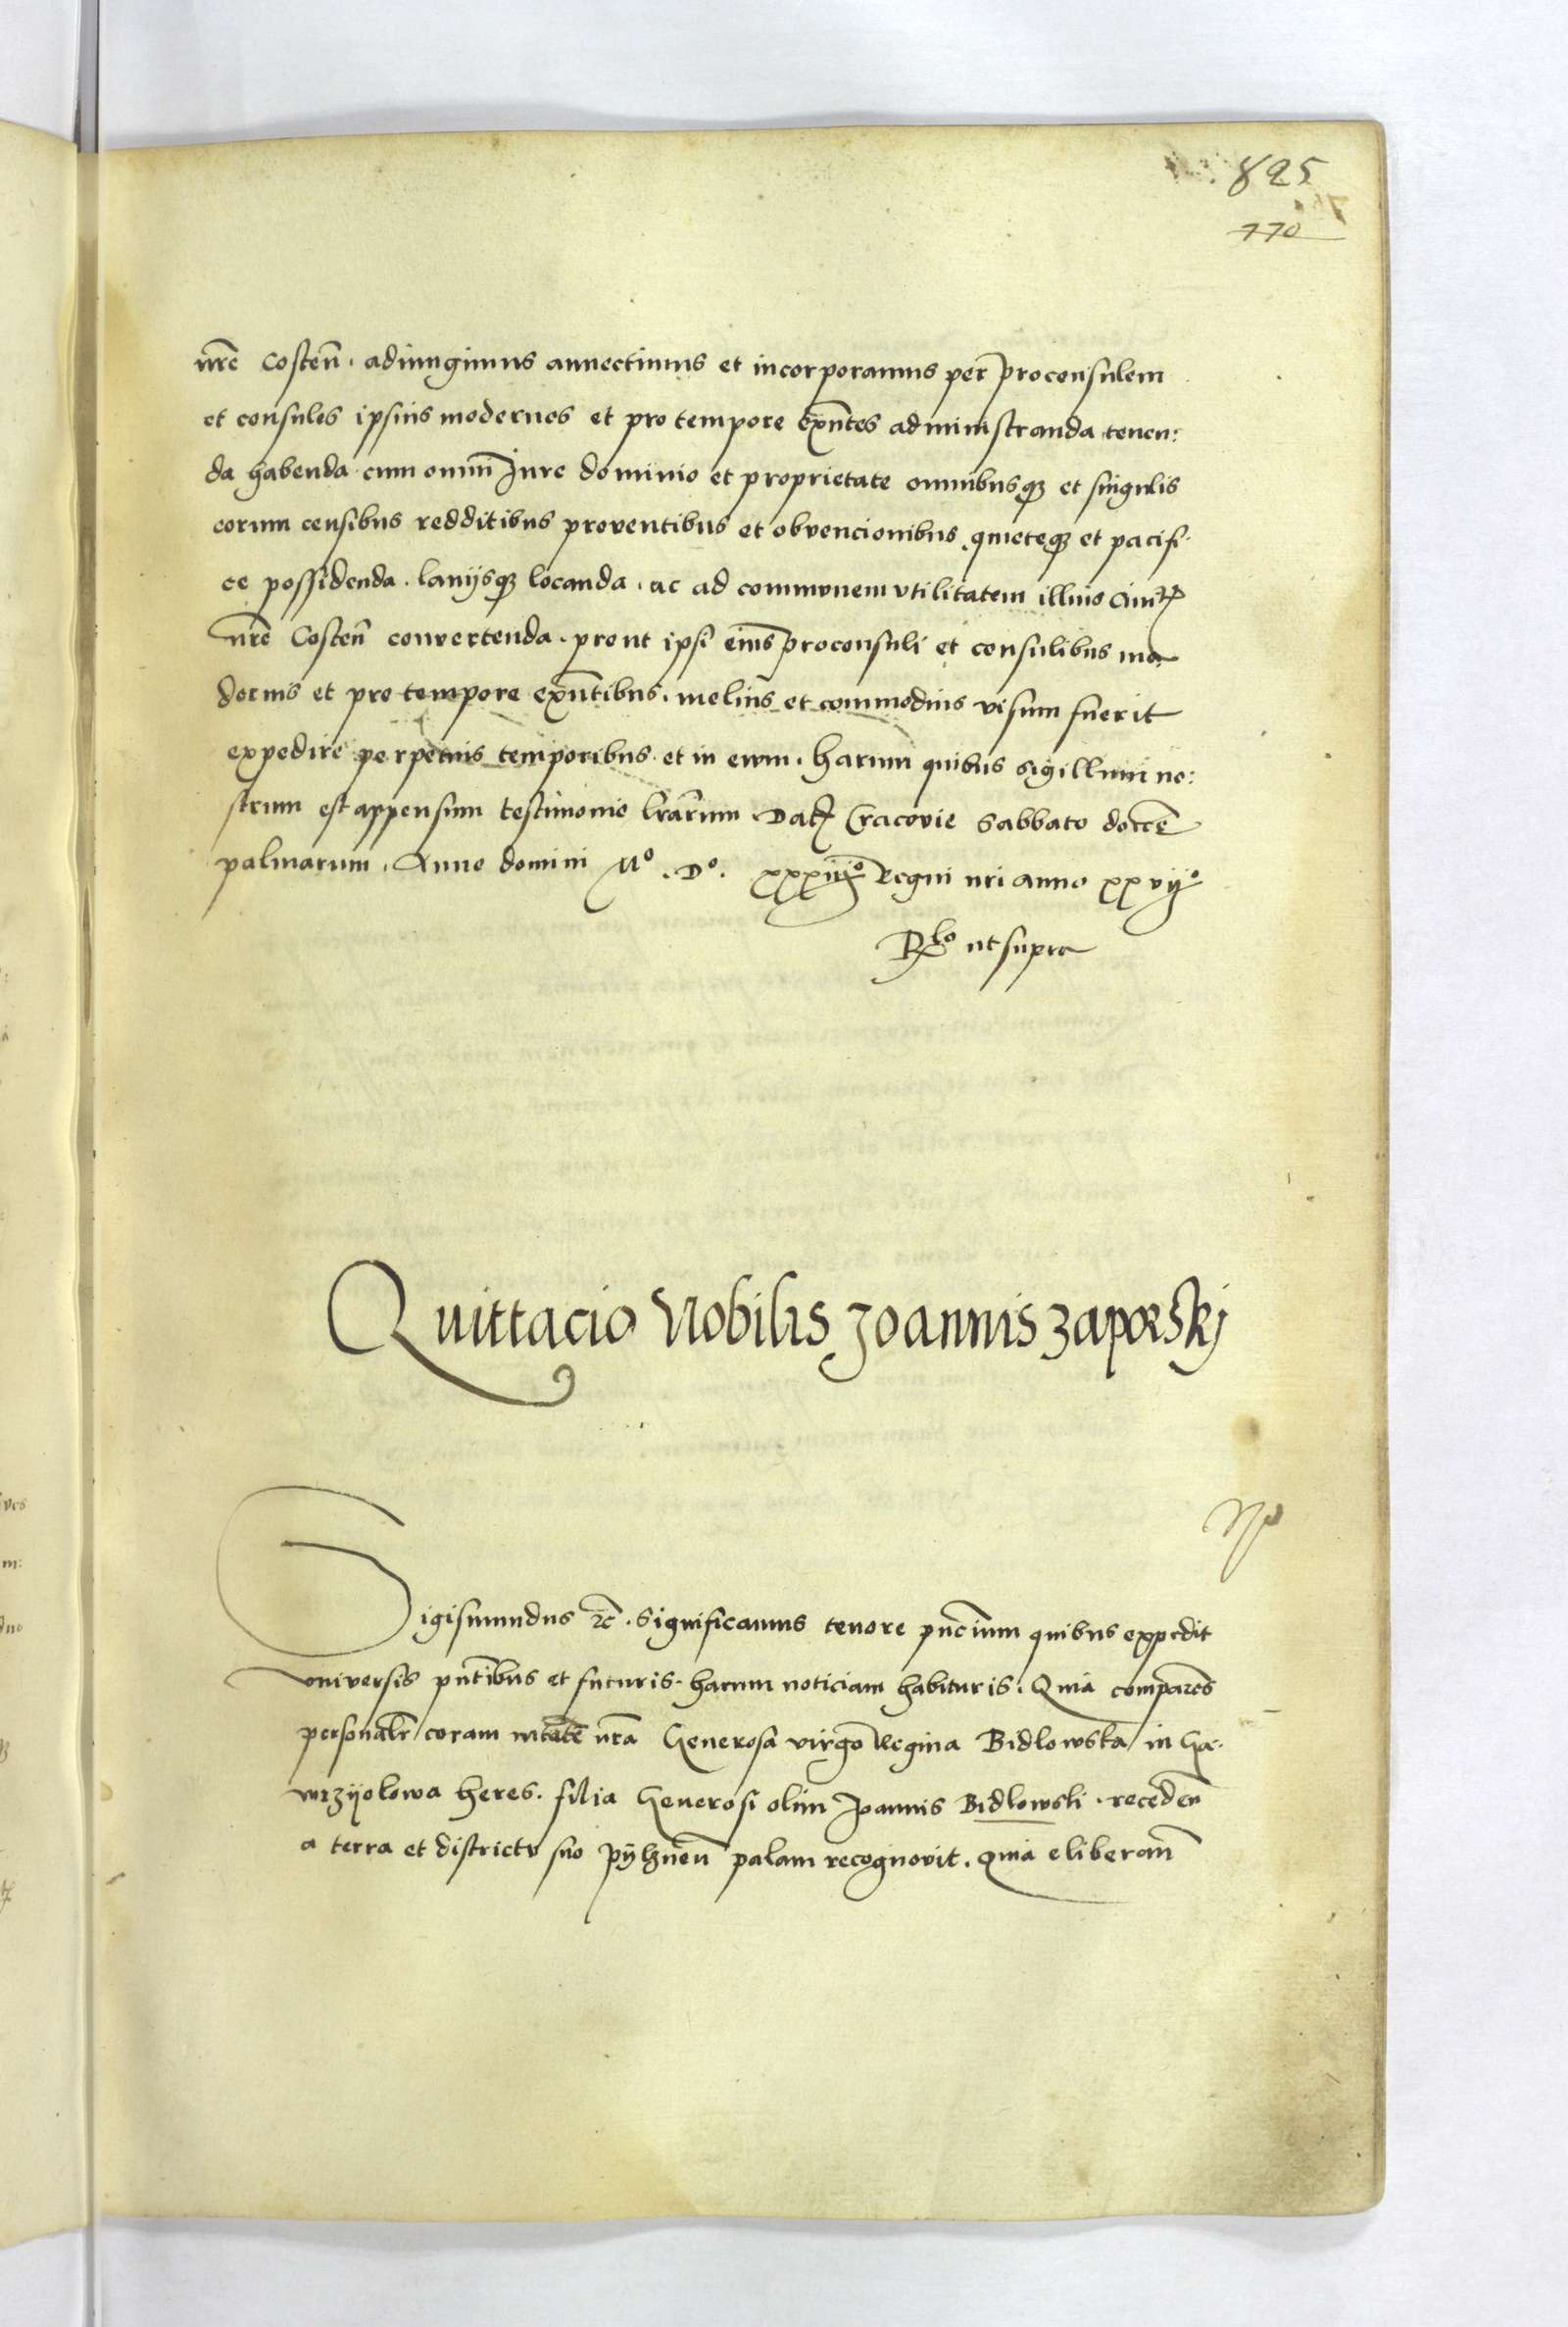 825
770
nre Costen . adiungimus annectimus et incorporamus per proconsulem
et consules ipsius modernos et pro tempore exntes administranda tenen:
da habenda cum omni Jure dominio et proprietate omnibusq et singulis
eorum censibus redditibus proventibus et obvencionibus quieteq et pacifi
ce possidenda . lanijsq locanda . ac ad communem vtilitatem illius Civit
nre Costen convertenda . prout ipsi eius proconsuli et consulibus mo
dernis et pro tempore exntibus . melius et commodius visum fuerit
expedire perpetuis temporibus et in evum . harum quibus sigillum no:
strum est appensum testimonio lrarum Dat Cracovie Sabbato
palmarum . Anno domini Mº . Dº . Regni nri anno xxvijº
Rlo ut supra
Quittacio Nobilis Joannis Zaporskj
Np
Sigismundus rc . Significamus tenore pncium quibus exppedit
vniversis pntibus et futuris . harum noticiam habituris . Quia comparens
personalr coram mtate nra Generosa virgo Regina Bidlowska in Ga
wrzyolowa heres . filia Generosi olim Joannis Bidlowski . receden
a terra et districtu suo pylznen palam recognovit . quia eliberam